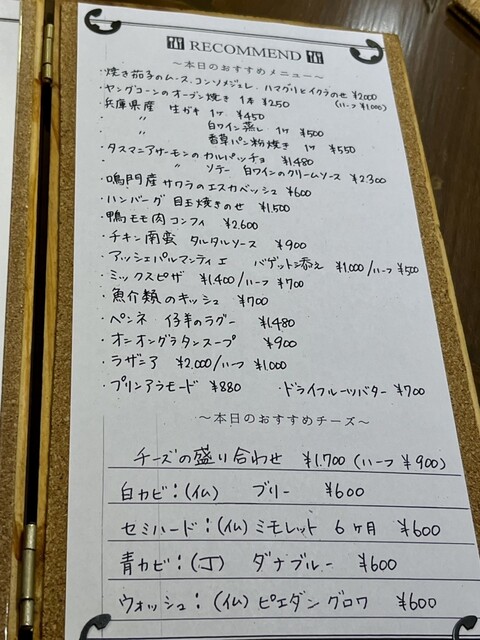 RECOMMEND
～本日のおすすめメニュー～
・焼き茄子のムース、コンソメジュレ、ハマグリとイクラのせ ¥2000
・ヤングコーンのオーブン焼き 1本 ¥250 (ハーフ ¥1000)
・兵庫県産 生ガキ 1ケ ¥450
〃 白ワイン蒸し 1ケ ¥500
〃 香草パン粉焼き 1ケ ¥550
・タスマニアサーモンのカルパッチョ ¥1480
〃 ソテー 白ワインのクリームソース ¥2300
・鳴門産サワラのエスカベッシュ ¥600
・ハンバーグ 目玉焼きのせ ¥1,500
・鴨モモ肉コンフィ ¥2.600
・チキン南蛮 タルタルソース ¥900
・アッシェパルマンティエ バゲット添え ¥1,000/ハーフ ¥500
・ミックスピザ ¥1,400/ハーフ ¥700
・魚介類のキッシュ ¥700
・ペンネ 仔羊のラグー ¥1,480
・オニオングラタンスープ ¥900
・ラザニア ¥2,000/ハーフ ¥1000
・プリンアラモード ¥880 ・ドライフルーツバター ¥700
～本日のおすすめチーズ～
チーズの盛り合わせ ¥1.700 (ハーフ ¥900)
白カビ:(仏) ブリー ¥600
セミハード:(仏) ミモレット 6ヶ月 ¥600
青カビ:(丁) ダナブルー ¥600
ウォッシュ:(仏) ピエダングロワ ¥600